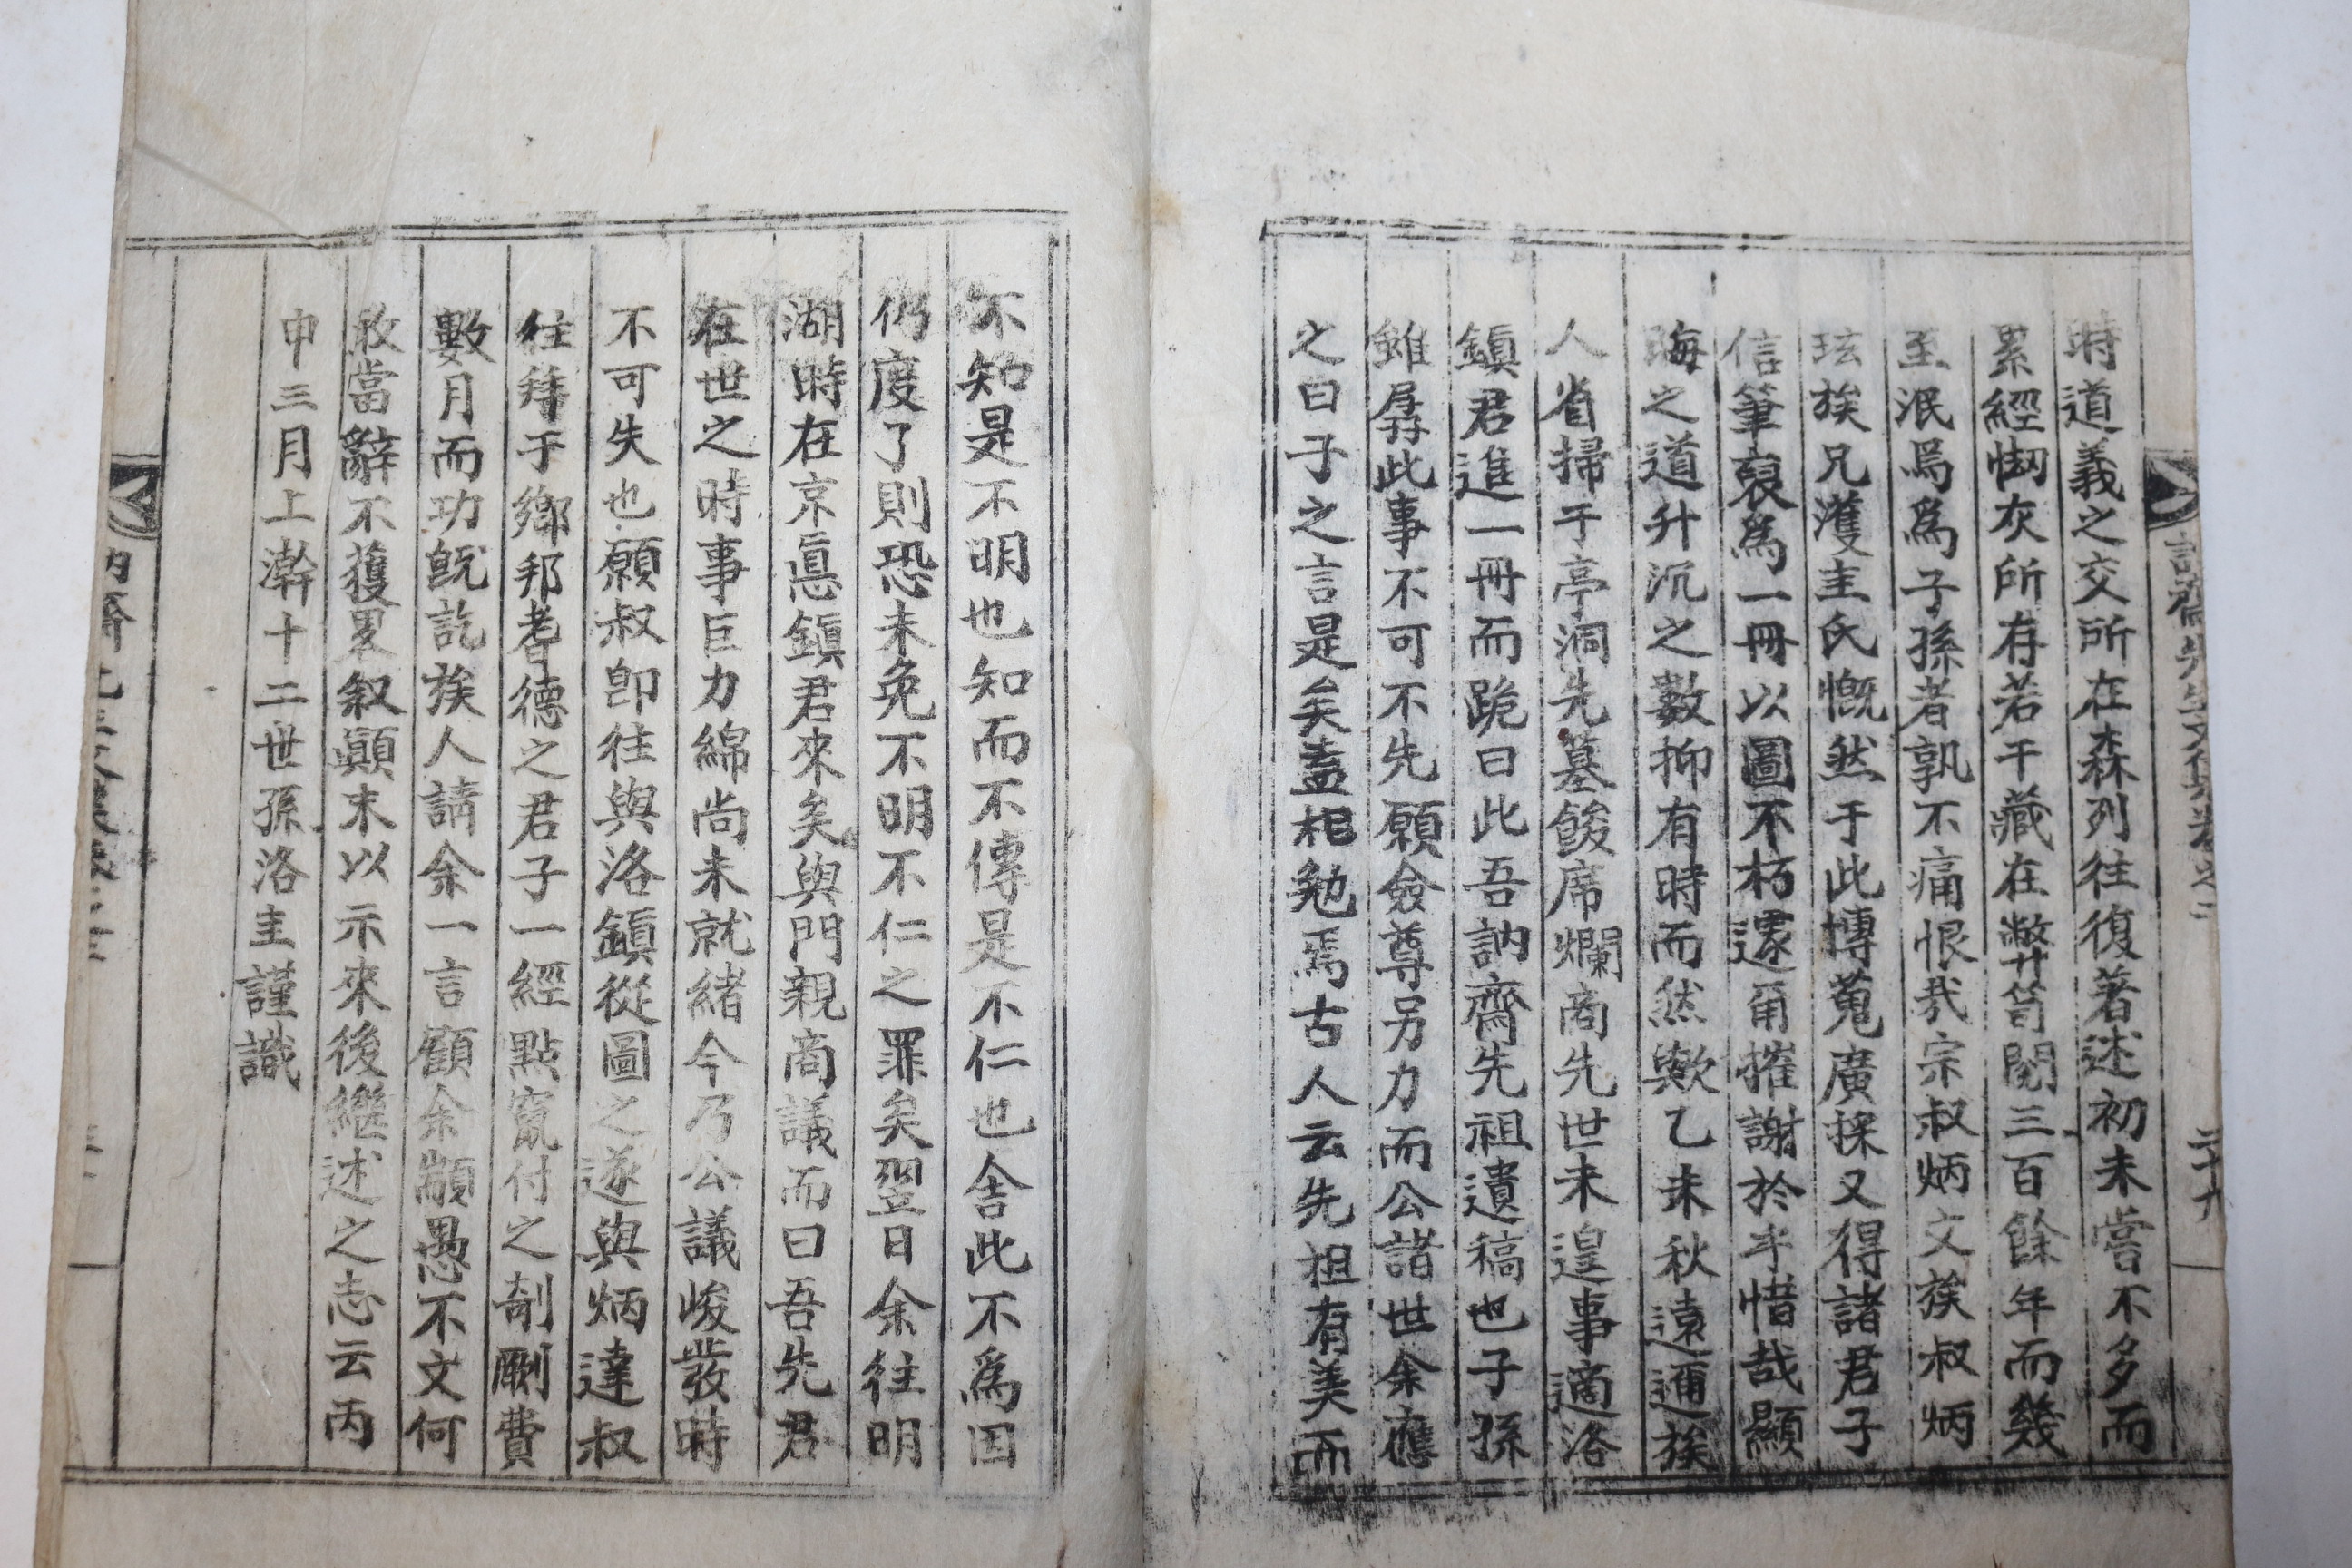 時道義之交所在森列往復著述初未嘗不多而
累經劫灰所存若干藏在弊笥閱三百餘年而幾
至泯焉爲子孫者孰不痛恨哉宗叔炳文族叔炳
玹族兄濩圭氏慨然于此博蒐廣採又得諸君子
信筆裒爲一冊以圖不朽還爾摧謝於乎惜哉顯
晦之道升沉之數抑有時而然歟乙未秋遠邇族
人省掃于亭洞先墓餕席爛商先世未遑事適洛
鎭君進一冊而跪曰此吾訥齋先祖遺稿也子孫
雖孱此事不可不先願僉尊另力而公諸世余應
之曰子之言是矣盍相勉焉古人云先祖有美而
訥齋先生文集卷之二
二十九
不知是不明也知而不傳是不仁也舍此不爲因
仍度了則恐未免不明不仁之罪矣翌日余往明
湖時在京悳鎭君來矣與門親商議而曰吾先君
在世之時事巨力綿尚未就緒今乃公議峻發時
不可失也願叔卽往與洛鎭從圖之遂與炳達叔
往拜于鄉邦耆德之君子一經點竄付之剞劂費
數月而功旣訖族人請余一言顧余顓愚不文何
敢當辭不獲畧叙顚末以示來後繼述之志云丙
申三月上澣十二世孫洛圭謹識